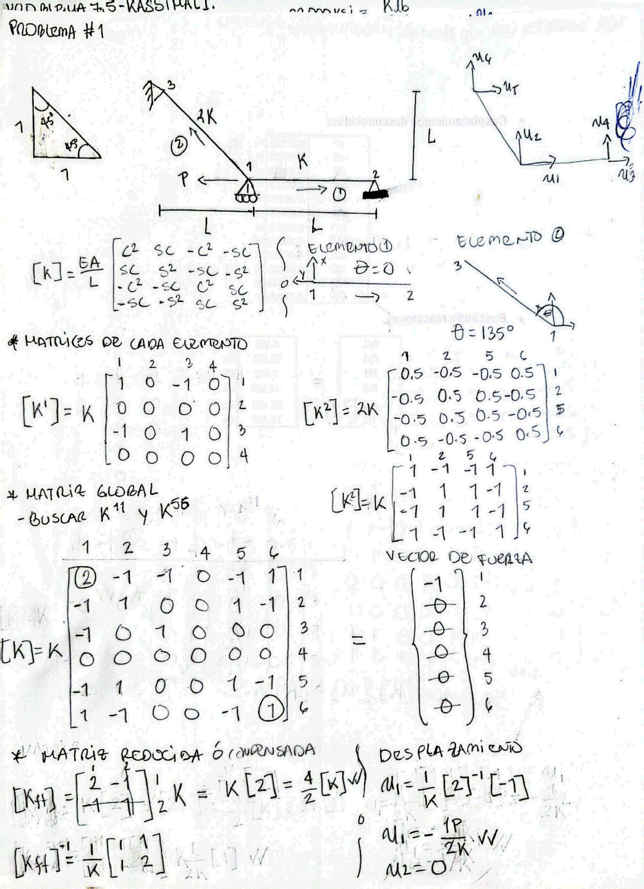 7.5-KASSIMALI.
PROBLEMA #1
45°
45°
1
1
3
2K
②
1
K
2
P
①
L
L
L
u6
u5
u2
u1
u4
u3
[K]=EA/L [C² SC -C² -SC
SC S² -SC -S²
-C² -SC C² SC
-SC -S² SC S²]
ELEMENTO ①
θ=0
Y
X
1 → 2
ELEMENTO ②
3
1
θ=135°
* MATRICES DE CADA ELEMENTO
1 2 3 4
[K¹] = K [1 0 -1 0] 1
0 0 0 0 2
-1 0 1 0 3
0 0 0 0 4
1 2 5 6
[K²]=2K [0.5 -0.5 -0.5 0.5] 1
-0.5 0.5 0.5 -0.5 2
-0.5 0.5 0.5 -0.5 5
0.5 -0.5 -0.5 0.5 6
1 2 5 6
[K²]=K [1 -1 -1 1] 1
-1 1 1 -1 2
-1 1 1 -1 5
1 -1 -1 1 6
* MATRIZ GLOBAL
- BUSCAR K¹¹ Y K⁵⁵
1 2 3 4 5 6
[K]=K [2 -1 -1 0 -1 1] 1
-1 1 0 0 1 -1 2
-1 0 1 0 0 0 3
0 0 0 0 0 0 4
-1 1 0 0 1 -1 5
1 -1 0 0 -1 1 6
=
VECTOR DE FUERZA
-1 1
0 2
0 3
0 4
0 5
0 6
* MATRIZ REDUCIDA Ó CONDENSADA
[Kff]=[2 -1
-1 1] 1 2 K = K[2] = 4/2 [K]
[Kff]⁻¹=1/K [1 1
1 2]
DESPLAZAMIENTO
u1=1/K [2]⁻¹ [-1]
u1=-1P/2K
u2=0